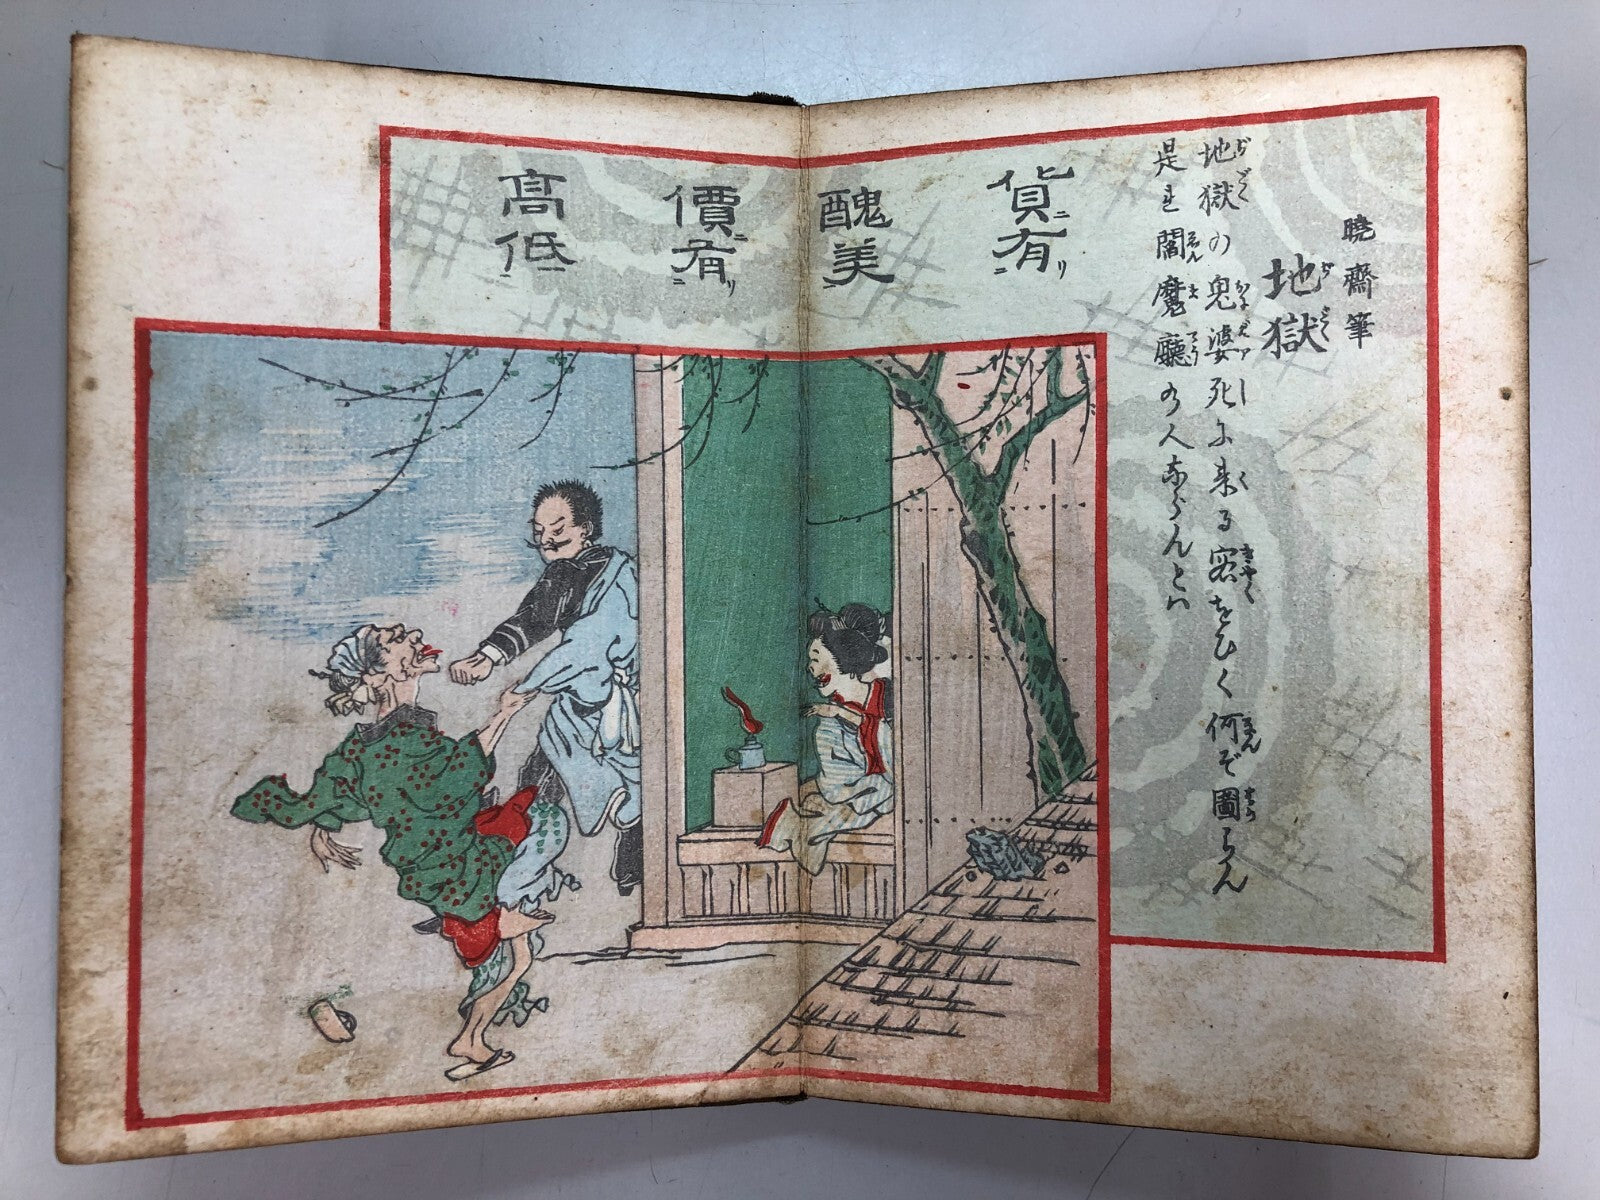 暁齋筆
地獄
ぢごく
地獄の鬼婆死に来る客をひく何ぞ圖らん
是は閻魔廳の人ならんとハ
貨有
醜美
價有
高低